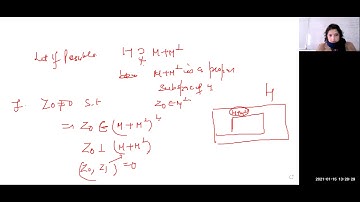 Let if Possible H ⊋ M+M⊥
M+M⊥ is a proper
subspace of H
Z0≠0 s.t Z0 ∈
⇒ Z0 ∈ (M+M⊥)⊥
H
Z0 ⊥ (M+M⊥)
(Z0, Z) = 0
2021-01-15 13:29:29